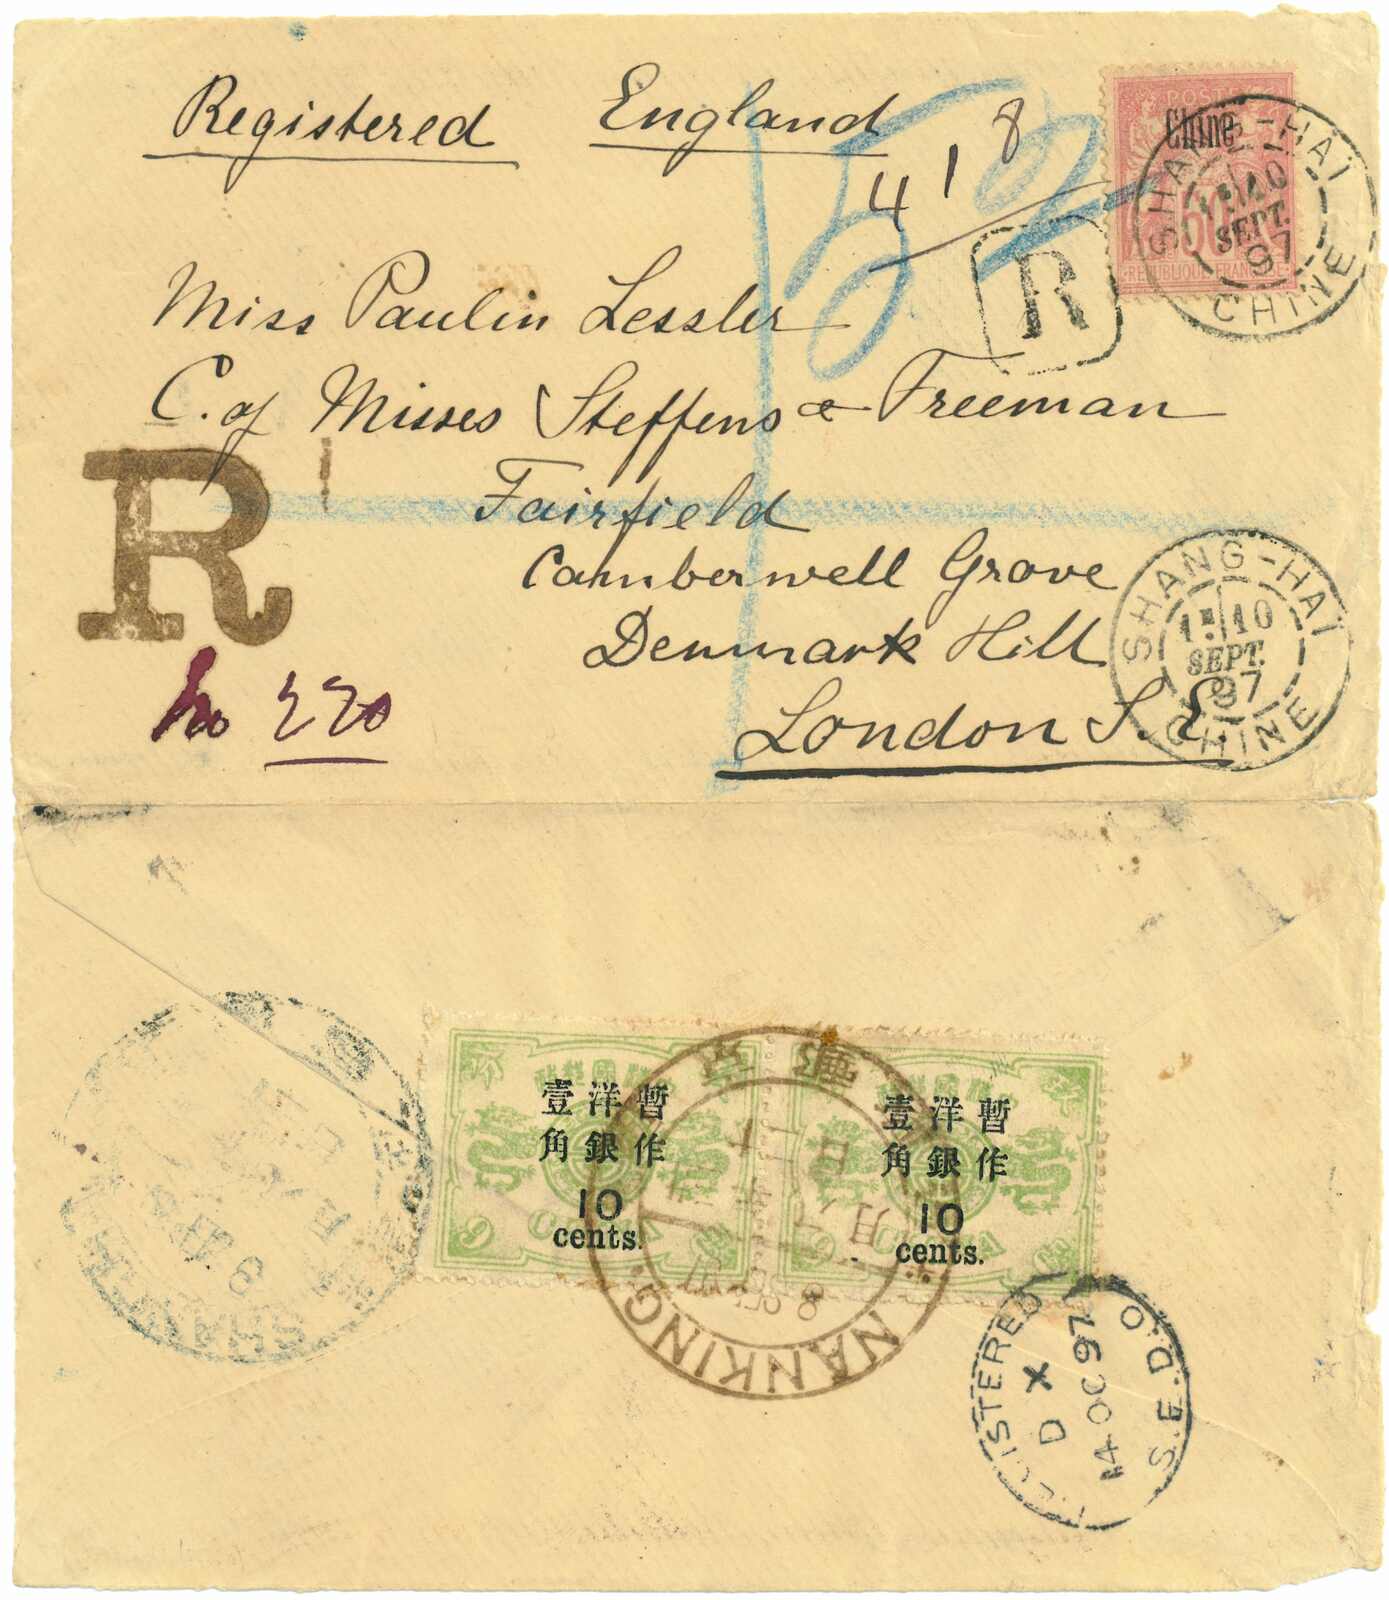 Registered England
4 1 8
POSTES
Chine
50
REPUBLIQUE FRANCAISE
SHANG-HAI
1E 10
SEPT.
97
CHINE
R
Miss Paulin Lessler
C. of Misses Steffens & Freeman
Fairfield
Camberwell Grove
Denmark Hill
London S.E.
R
No 220
SHANG-HAI
1E 10
SEPT.
97
CHINE
暫作洋銀壹角
10
cents.
暫作洋銀壹角
10
cents.
NANKING
8 SEP
REGISTERED
D X
14 OC 97
S.E.D.O